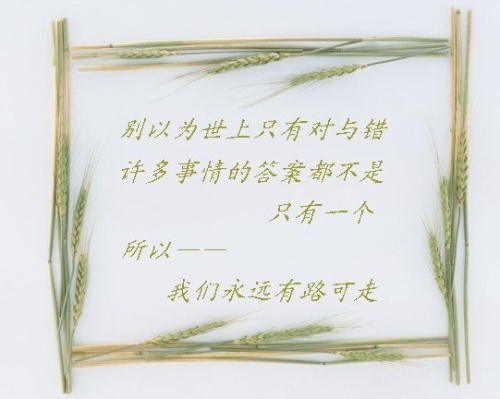 别以为世上只有对与错
许多事情的答案都不是
只有一个
所以——
我们永远有路可走